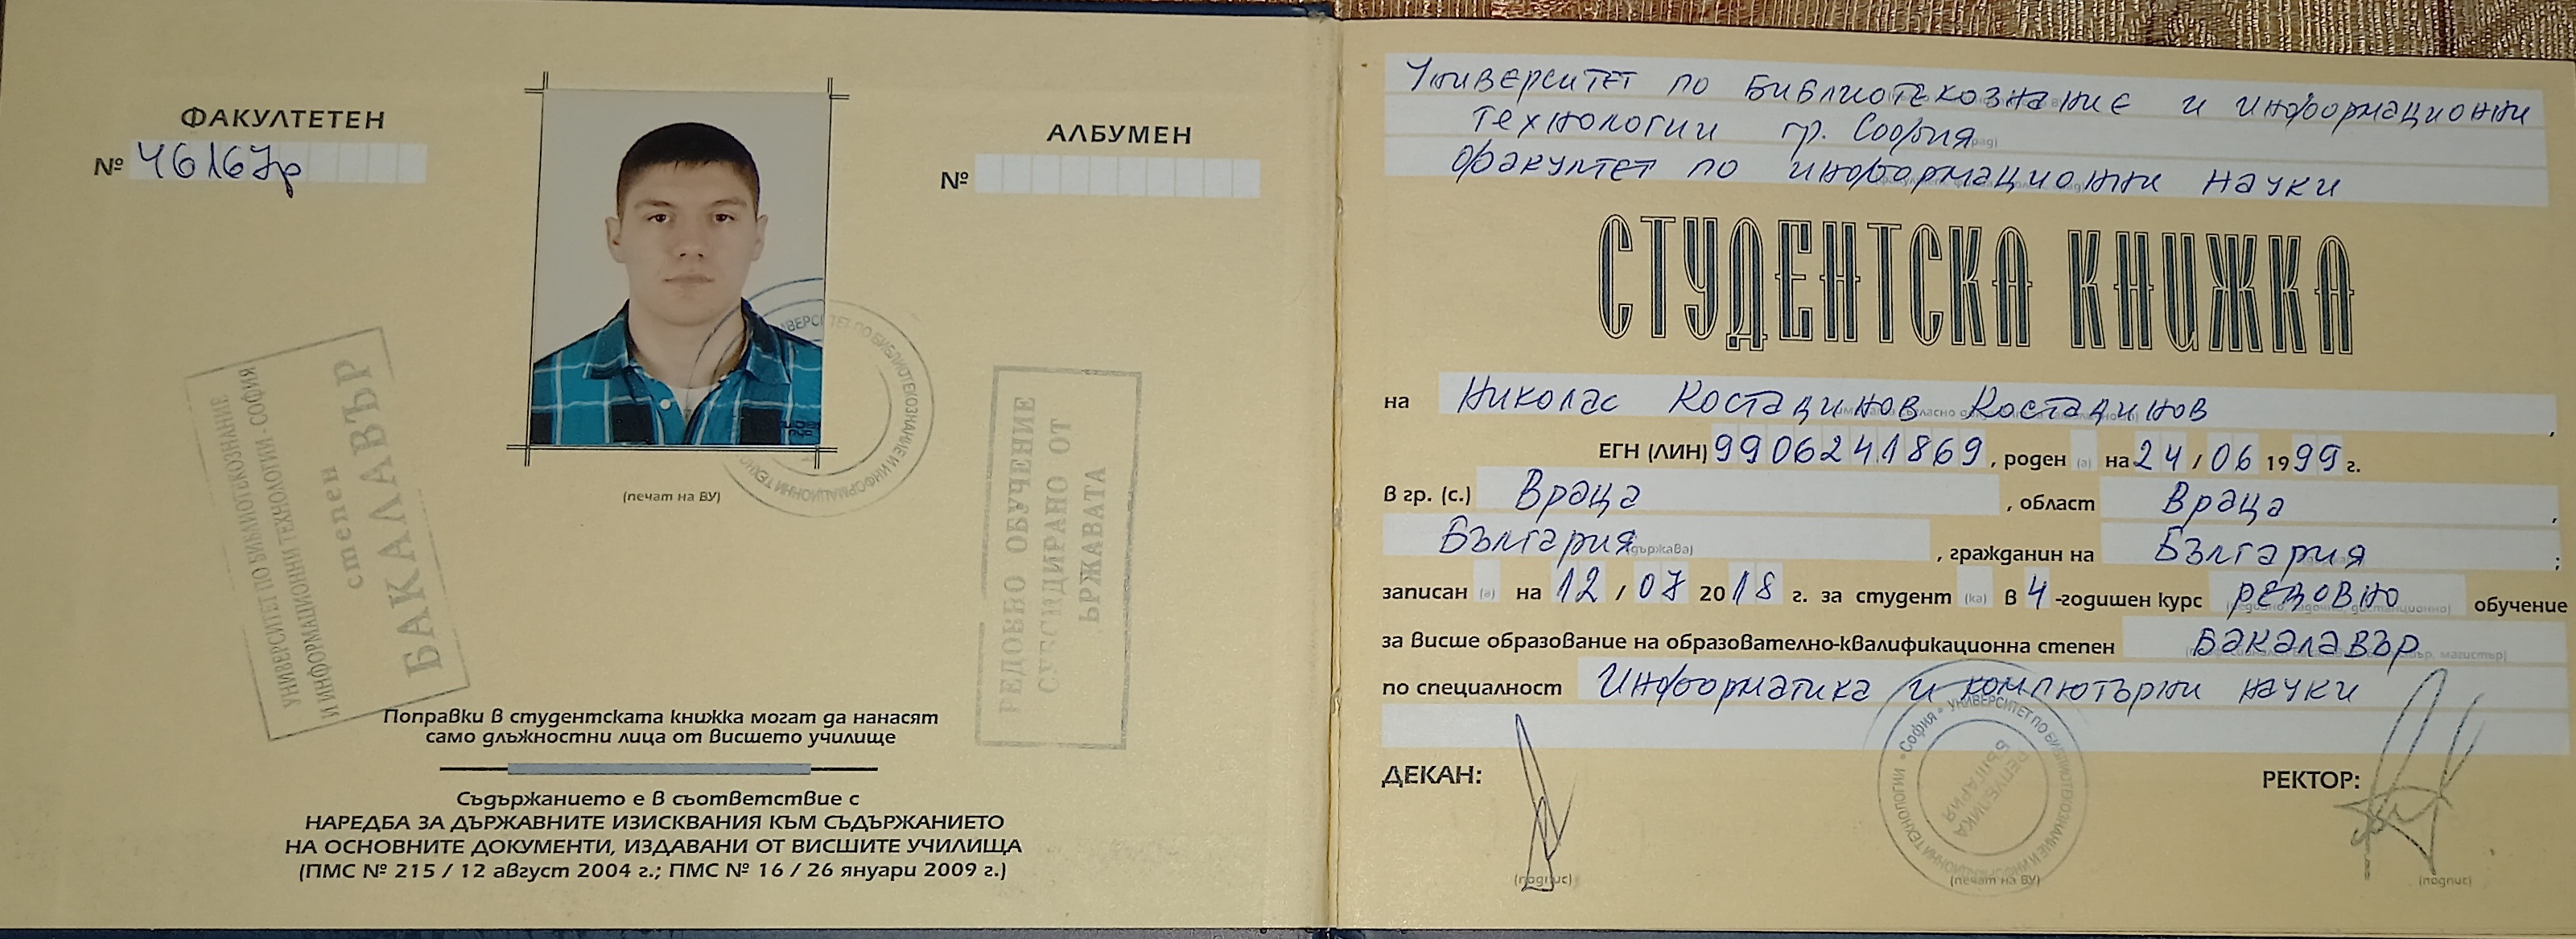 ФАКУЛТЕТЕН
№ 46167р
АЛБУМЕН
№
(печат на ВУ)
УНИВЕРСИТЕТ ПО БИБЛИОТЕКОЗНАНИЕ
И ИНФОРМАЦИОННИ ТЕХНОЛОГИИ - СОФИЯ
степен
БАКАЛАВЪР
РЕДОВНО ОБУЧЕНИЕ
СУБСИДИРАНО ОТ
ЪРЖАВАТА
Поправки в студентската книжка могат да нанасят
само длъжностни лица от висшето училище
Съдържанието е в съответствие с
НАРЕДБА ЗА ДЪРЖАВНИТЕ ИЗИСКВАНИЯ КЪМ СЪДЪРЖАНИЕТО
НА ОСНОВНИТЕ ДОКУМЕНТИ, ИЗДАВАНИ ОТ ВИСШИТЕ УЧИЛИЩА
(ПМС № 215 / 12 август 2004 г.; ПМС № 16 / 26 януари 2009 г.)
Университет по Библиотекознание и информационни
технологии гр. София
факултет по информационни науки
СТУДЕНТСКА КНИЖКА
на Николас Костадинов Костадинов ,
ЕГН (ЛИН) 9906241869 , роден (а) на 24 / 06 1999 г.
в гр. (с.) Враца , област Враца ,
България (държава) , гражданин на България ;
записан (а) на 12 / 07 2018 г. за студент (ка) в 4 -годишен курс редовно обучение
за висше образование на образователно-квалификационна степен Бакалавър
по специалност Информатика и компютърни науки
ДЕКАН: РЕКТОР:
УНИВЕРСИТЕТ ПО БИБЛИОТЕКОЗНАНИЕ И ИНФОРМАЦИОННИ ТЕХНОЛОГИИ * София *
РЕПУБЛИКА
БЪЛГАРИЯ
(подпис) (печат на ВУ) (подпис)